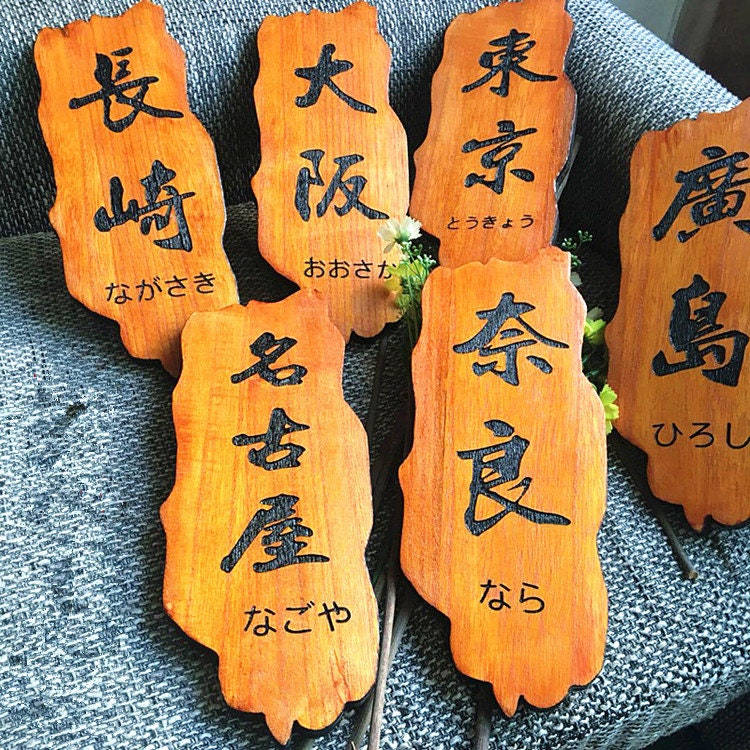 長崎
ながさき
大阪
おおさか
東京
とうきょう
廣島
ひろし
名古屋
なごや
奈良
なら